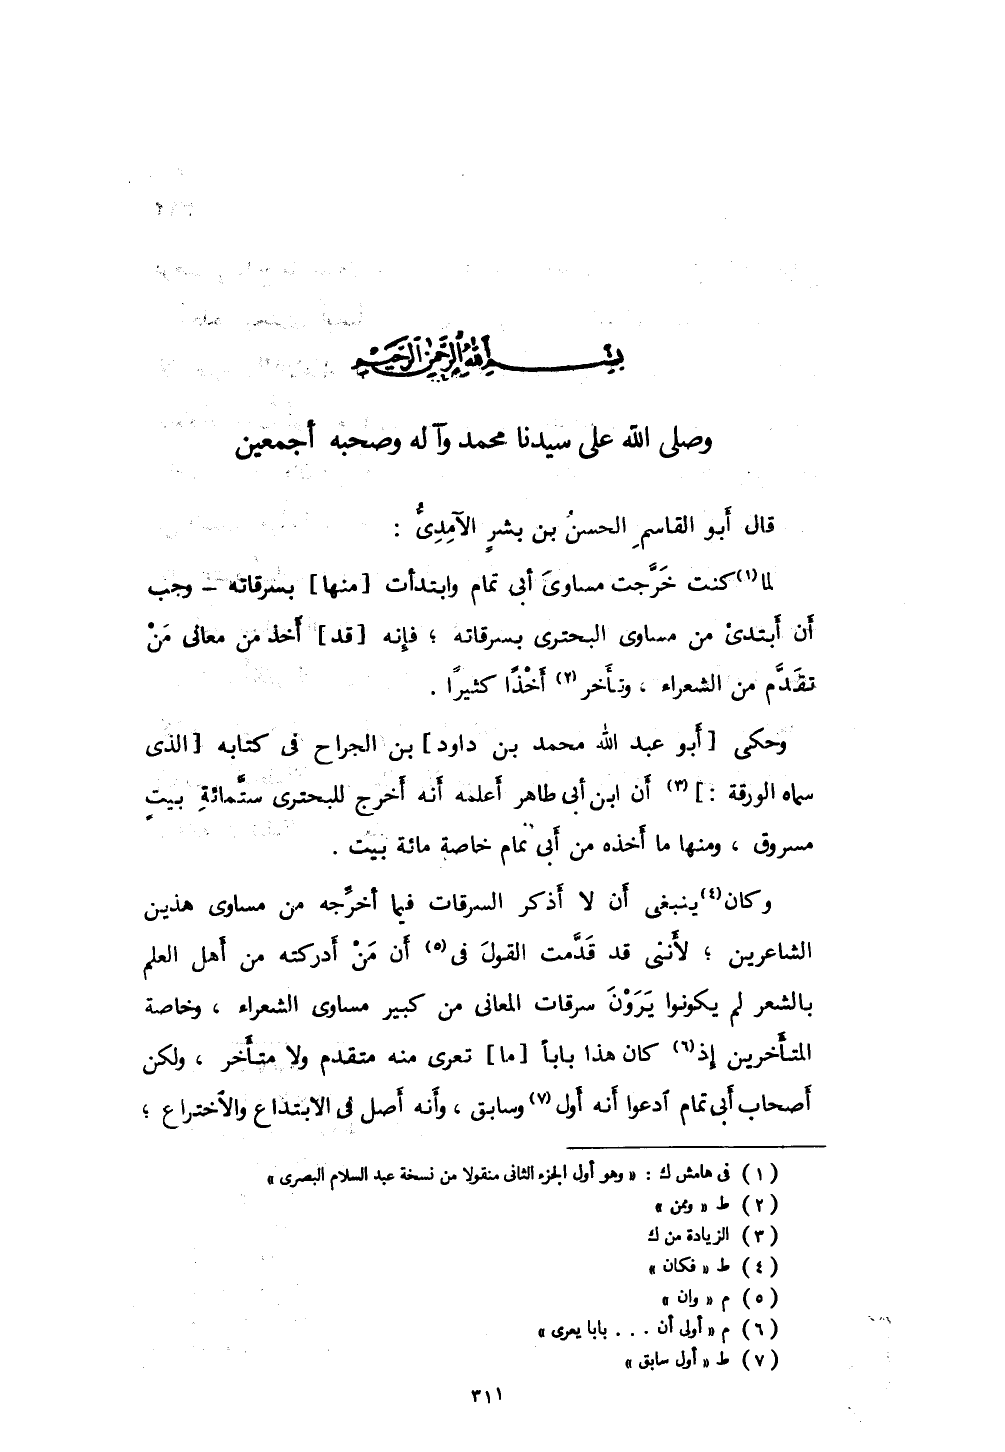 بسم الله الرحمن الرحيم
وصلى الله على سيدنا محمد وآله وصحبه أجمعين
قال أَبو القاسمِ الحسنُ بن بشرٍ الآمِدِىُّ :
لما(١) كنت خَرَّجت مساوىَ أبى تمام وابتدأت [منها] بسرقاته – وجب
أَن أَبتدئ من مساوى البحترى بسرقاته ؛ فإِنه [قد] أَخذ من معانى مَنْ
تقَدَّم من الشعراء ، وتأَخر(٢) أَخْذًا كثيرًا .
وحكى [أَبو عبد الله محمد بن داود] بن الجراح فى كتابه [الذى
سماه الورقة :](٣) أَن ابن أبى طاهر أَعلمه أَنه أَخرج للبحترى ستَّمائةِ بيتٍ
مسروق ، ومنها ما أَخذه من أَبى تمام خاصة مائة بيت .
وكان(٤) ينبغى أَن لا أَذكر السرقات فيما أخرِّجه من مساوى هذين
الشاعرين ؛ لأَننى قد قَدَّمت القولَ فى(٥) أَن مَنْ أَدركته من أَهل العلم
بالشعر لم يكونوا يَرَوْنَ سرقات المعانى من كبير مساوى الشعراء ، وخاصة
المتأَخرين إِذ(٦) كان هذا باباً [ما] تعرى منه متقدم ولا متأَخر ، ولكن
أَصحاب أَبى تمام ٱدعوا أَنه أَول(٧) وسابق ، وأَنه أَصل فى الابتداع والاختراع ؛
(١) فى هامش ك : « وهو أول الجزء الثانى منقولا من نسخة عبد السلام البصرى »
(٢) ط « ومن »
(٣) الزيادة من ك
(٤) ط « فكان »
(٥) م « وان »
(٦) م « أولى أن . . . بابا يعرى »
(٧) ط « أول سابق »
٣١١